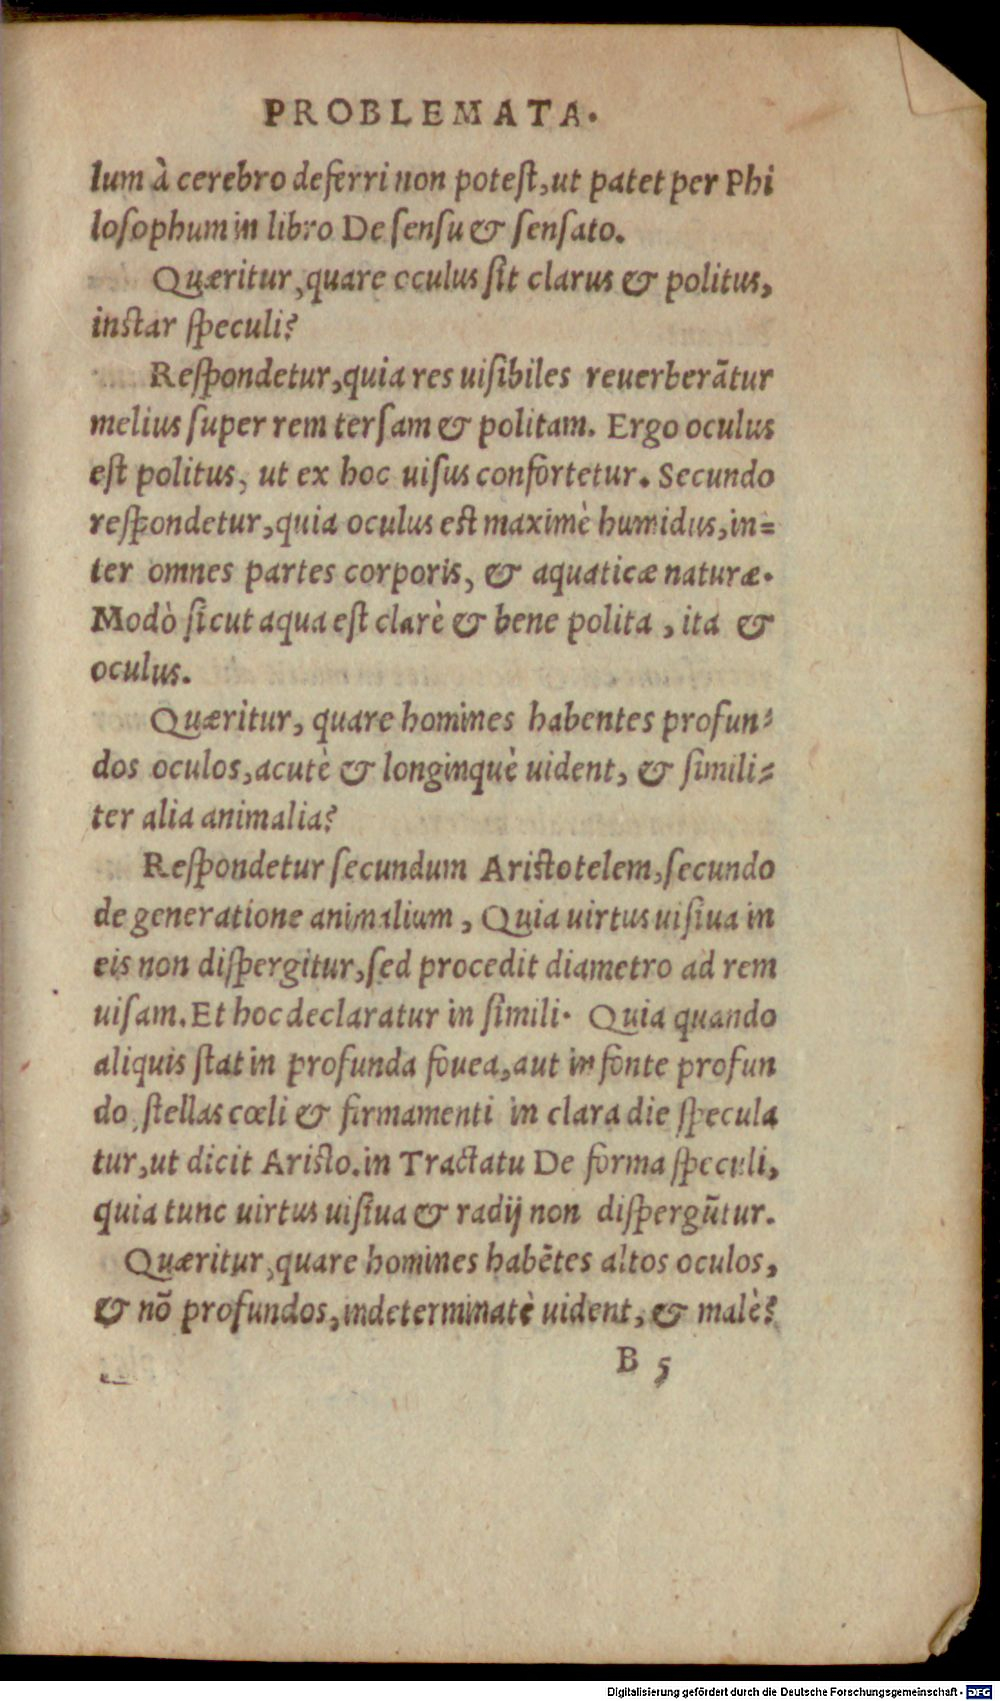 PROBLEMATA.
lum à cerebro deferri non potest, ut patet per Phi
losophum in libro De sensu & sensato.
Quæritur, quare oculus sit clarus & politus,
instar speculi?
Respondetur, quia res uisibiles reuerberãtur
melius super rem tersam & politam. Ergo oculus
est politus, ut ex hoc uisus confortetur. Secundo
respondetur, quia oculus est maximè humidus, in=
ter omnes partes corporis, & aquaticæ naturæ.
Modò sicut aqua est clarè & bene polita, ita &
oculus.
Quæritur, quare homines habentes profun=
dos oculos, acutè & longinquè uident, & simili=
ter alia animalia?
Respondetur secundum Aristotelem, secundo
de generatione animalium, Quia uirtus uisiua in
eis non dispergitur, sed procedit diametro ad rem
uisam. Et hoc declaratur in simili. Quia quando
aliquis stat in profunda fouea, aut in fonte profun
do, stellas cœli & firmamenti in clara die specula
tur, ut dicit Aristo. in Tractatu De forma speculi,
quia tunc uirtus uisiua & radij non dispergũtur.
Quæritur, quare homines habẽtes altos oculos,
& nõ profundos, indeterminatè uident, & malè?
B 5
Digitalisierung gefördert durch die Deutsche Forschungsgemeinschaft - DFG